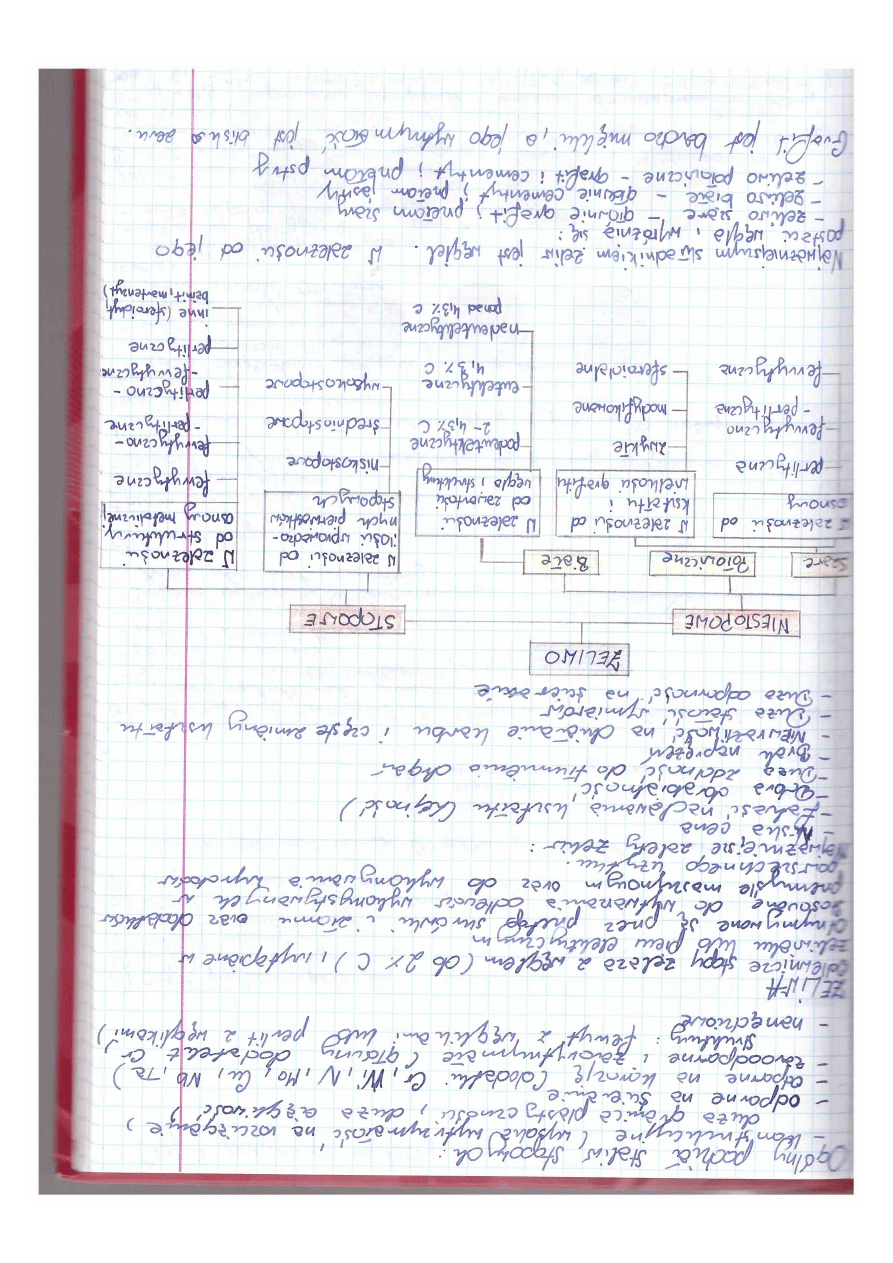 Ogólny podział staliw stopowych:
- konstrukcyjne (wysoka wytrzymałość na rozciąganie,
duża granica plastyczności, duża ciągliwość)
- odporne na ścieranie
- odporne na korozję (dodatki: Cr, Ni, N, Mo, Cu, Nb, Ta)
- żaroodporne i żarowytrzymałe (główny dodatek Cr,
struktury: ferryt z węglikami lub perlit z węglikami)
- narzędziowe
ŻELIWA
odlewnicze stopy żelaza z węglem (do 2% C), wytapiane w
żeliwiaku lub piecu elektrycznym
Otrzymywane są przez przetop surówki i złomu oraz dodatków
Stosowane do wytwarzania odlewów wykorzystywanych w
przemyśle maszynowym oraz do wykonywania wyrobów
powszechnego użytku.
Najważniejsze zalety żeliw:
- Niska cena
- Łatwość nadawania kształtu (lejność)
- dobra obrabialność
- Duża zdolność do tłumienia drgań
- Brak naprężeń
- Niewrażliwość na działanie karbu i częste zmiany kształtu
- Duża stałość wymiarów
- Duża odporność na ścieranie
ŻELIWO
NIESTOPOWE
STOPOWE
Szare
Połowiczne
Białe
W zależności od
osnowy
perlityczna
ferrytyczno
- perlityczna
ferrytyczna
W zależności od
kształtu i
wielkości grafitu
zwykłe
modyfikowane
sferoidalne
W zależności
od zawartości
węgla i struktury
podeutektyczne
2-4,3% C
eutektyczne
4,3% C
nadeutektyczne
ponad 4,3% C
W zależności od
ilości wprowadzo-
nych pierwiastków
stopowych
niskostopowe
średniostopowe
wysokostopowe
W zależności
od struktury
osnowy metalicznej
ferrytyczne
ferrytyczno-
-perlityczne
perlityczno-
-ferrytyczne
perlityczne
inne (sferoidyt,
bainit, martenzyt)
Najważniejszym składnikiem żeliw jest węgiel. W zależności od jego
postaci węgla, wyróżnia się:
- żeliwo szare - głównie grafit, przełom szary
- żeliwo białe - głównie cementyt, przełom jasny
- żeliwo połowiczne - grafit i cementyt, przełom pstry
Grafit jest bardzo miękki, a jego wytrzymałość jest bliska zeru.